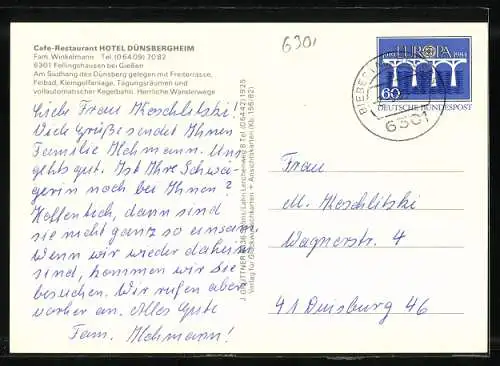 Cafe-Restaurant HOTEL DÜNSBERGHEIM
Fam. Winkelmann Tel. (06409) 7082
6301 Fellingshausen bei Gießen
Am Südhang des Dünsberg gelegen mit Freiterrasse,
Freibad, Kleingolfanlage, Tagungsräumen und
vollautomatischer Kegelbahn. Herrliche Wanderwege
Liebe Frau Meschlitzki!
Viele Grüße sendet Ihnen
Familie Mehmann. Uns
gehts gut. Ist Ihre Schwä-
gerin noch bei Ihnen?
Hoffentlich, dann sind
sie nicht ganz so einsam.
Wenn wir wieder daheim
sind, kommen wir Sie
besuchen. Wir rufen aber
vorher an. Alles Gute
Fam. Mehmann!
Tel. (06442) 1925
Verlag für Glückwunschkarten + Ansichtskarten
6301
EUROPA
1959 1984
60
DEUTSCHE BUNDESPOST
BIEBERTAL
6301
Frau
M. Meschlitzki
Wagnerstr. 4
41 Duisburg 46